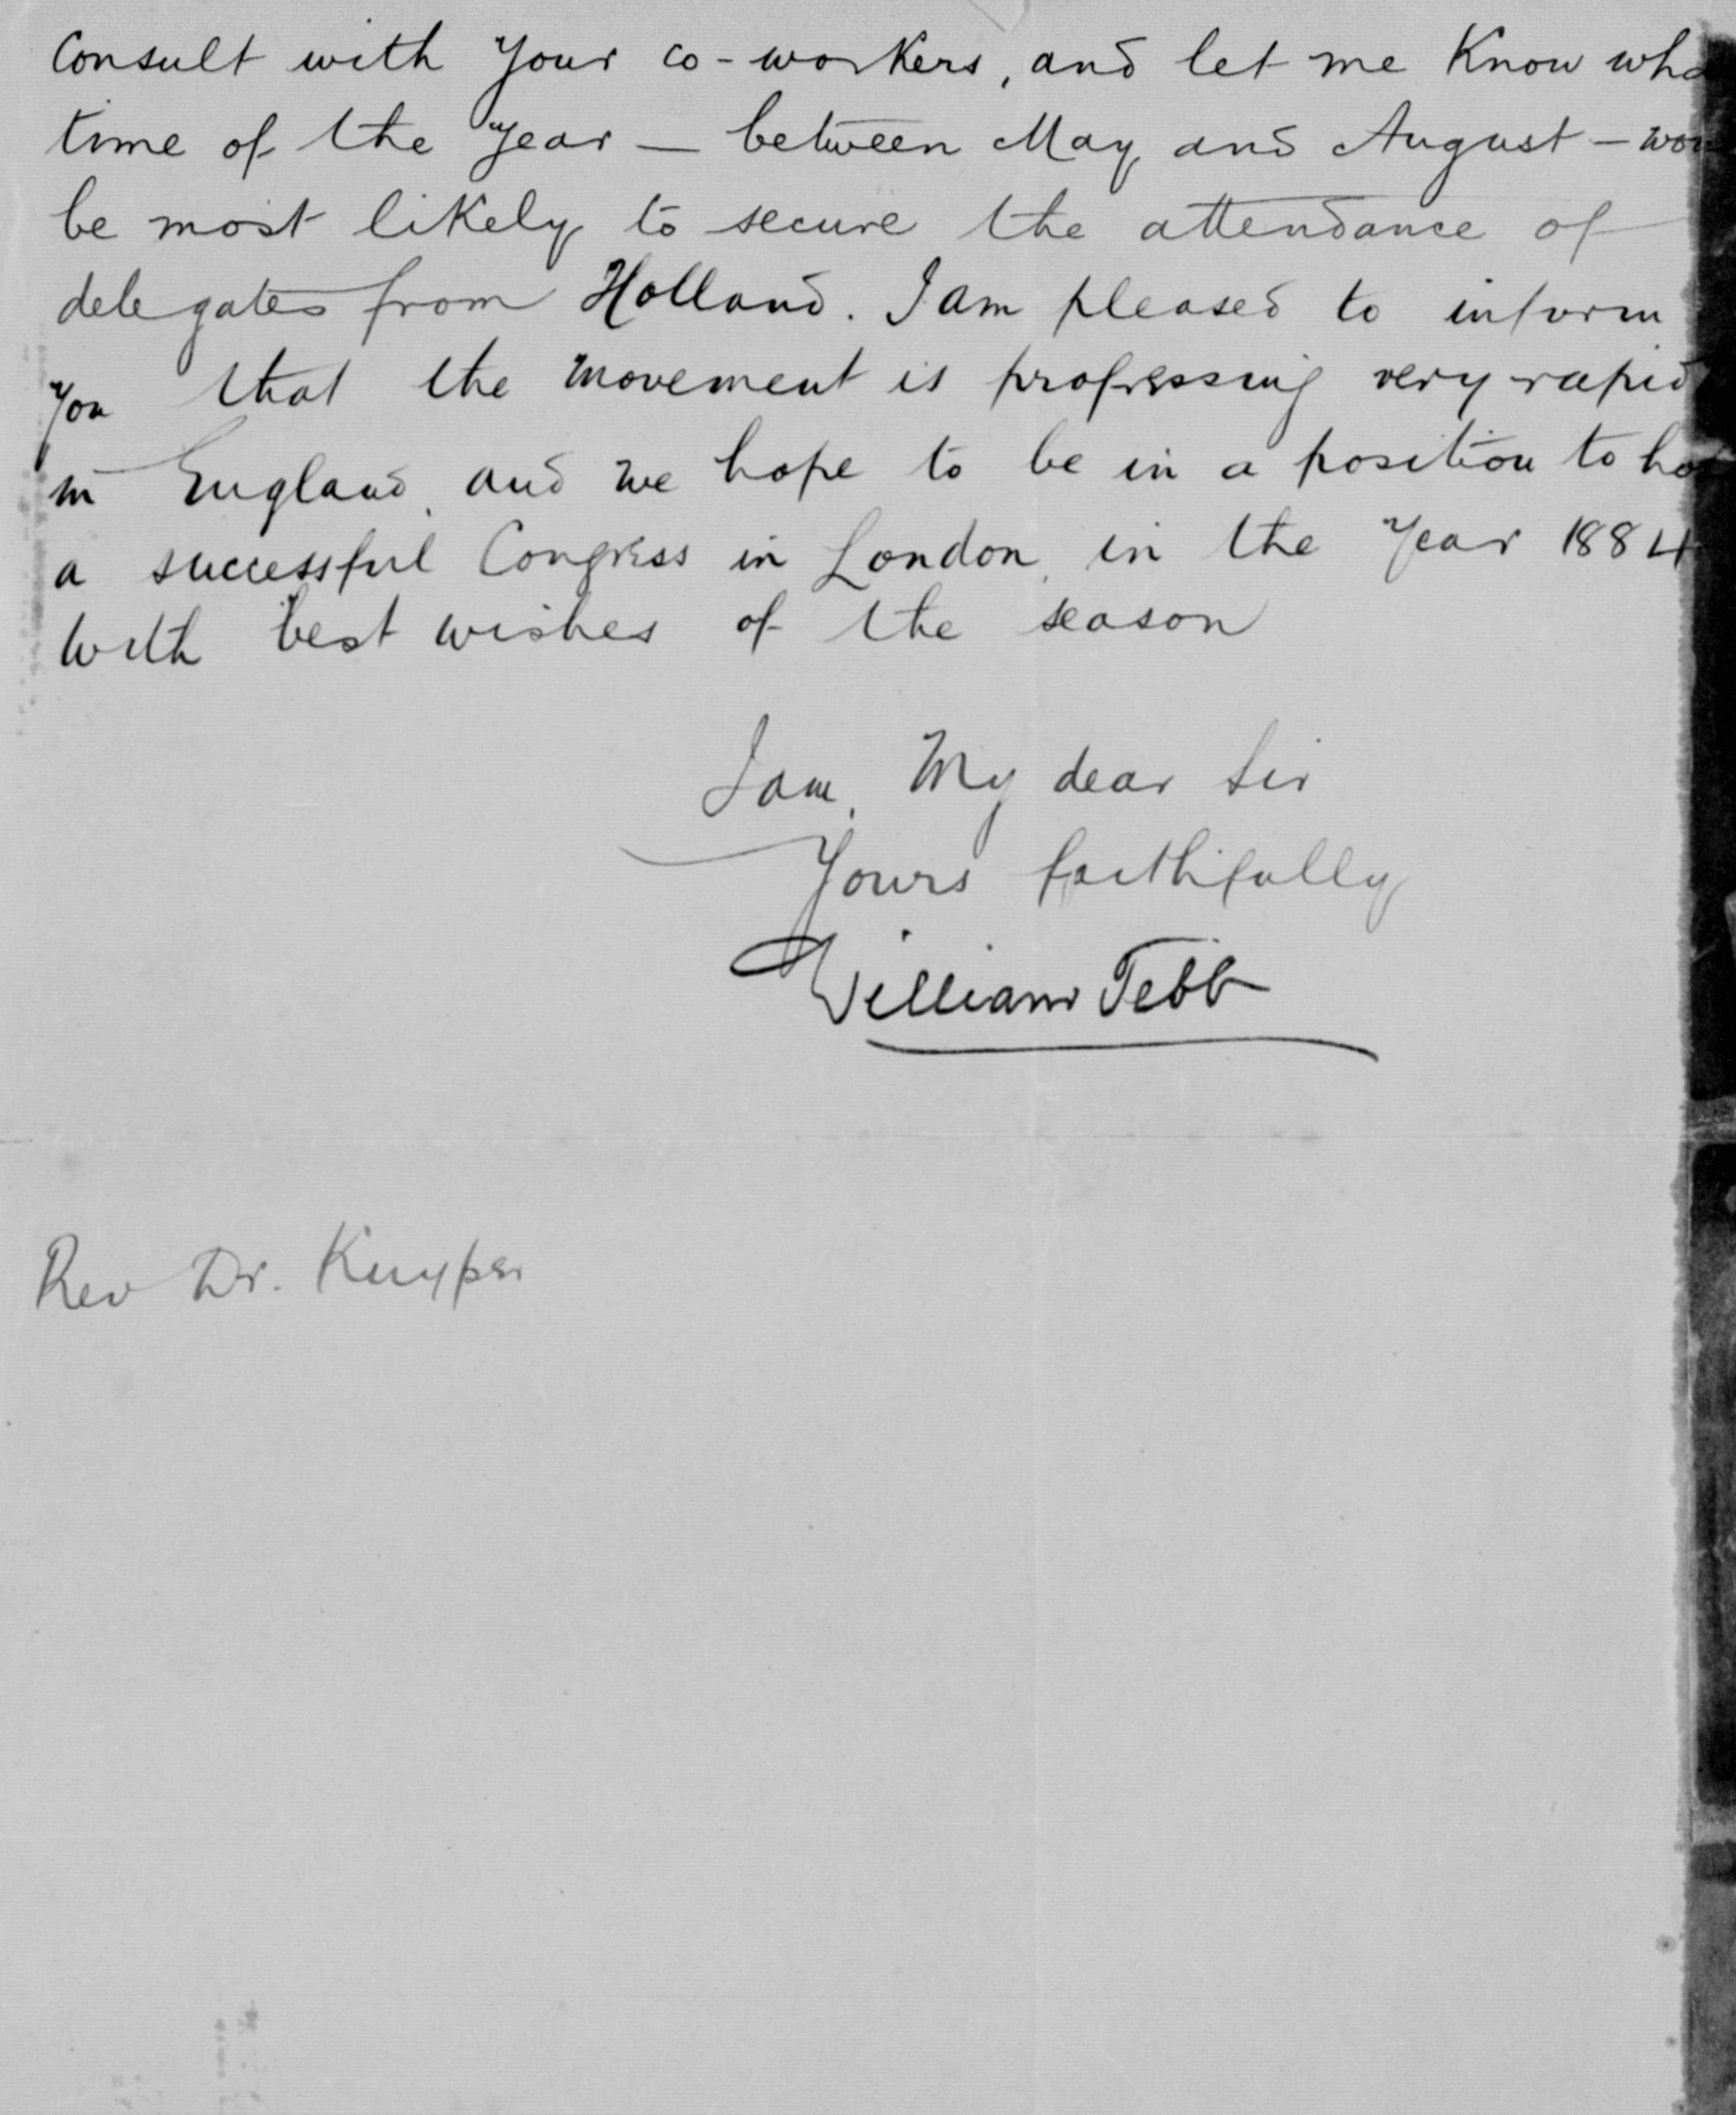 Consult with your co-workers, and let me Know wha
time of the Year — between May and August — wou
be most likely to secure the attendance of
delegates from Holland. I am pleased to inform
You that the movement is progressing very rapid
in England, and we hope to be in a position to ho
a successful Congress in London, in the Year 1884
With best wishes of the season
I am, My dear Sir
Yours faithfully
William Tebb
Rev Dr. Kuyper